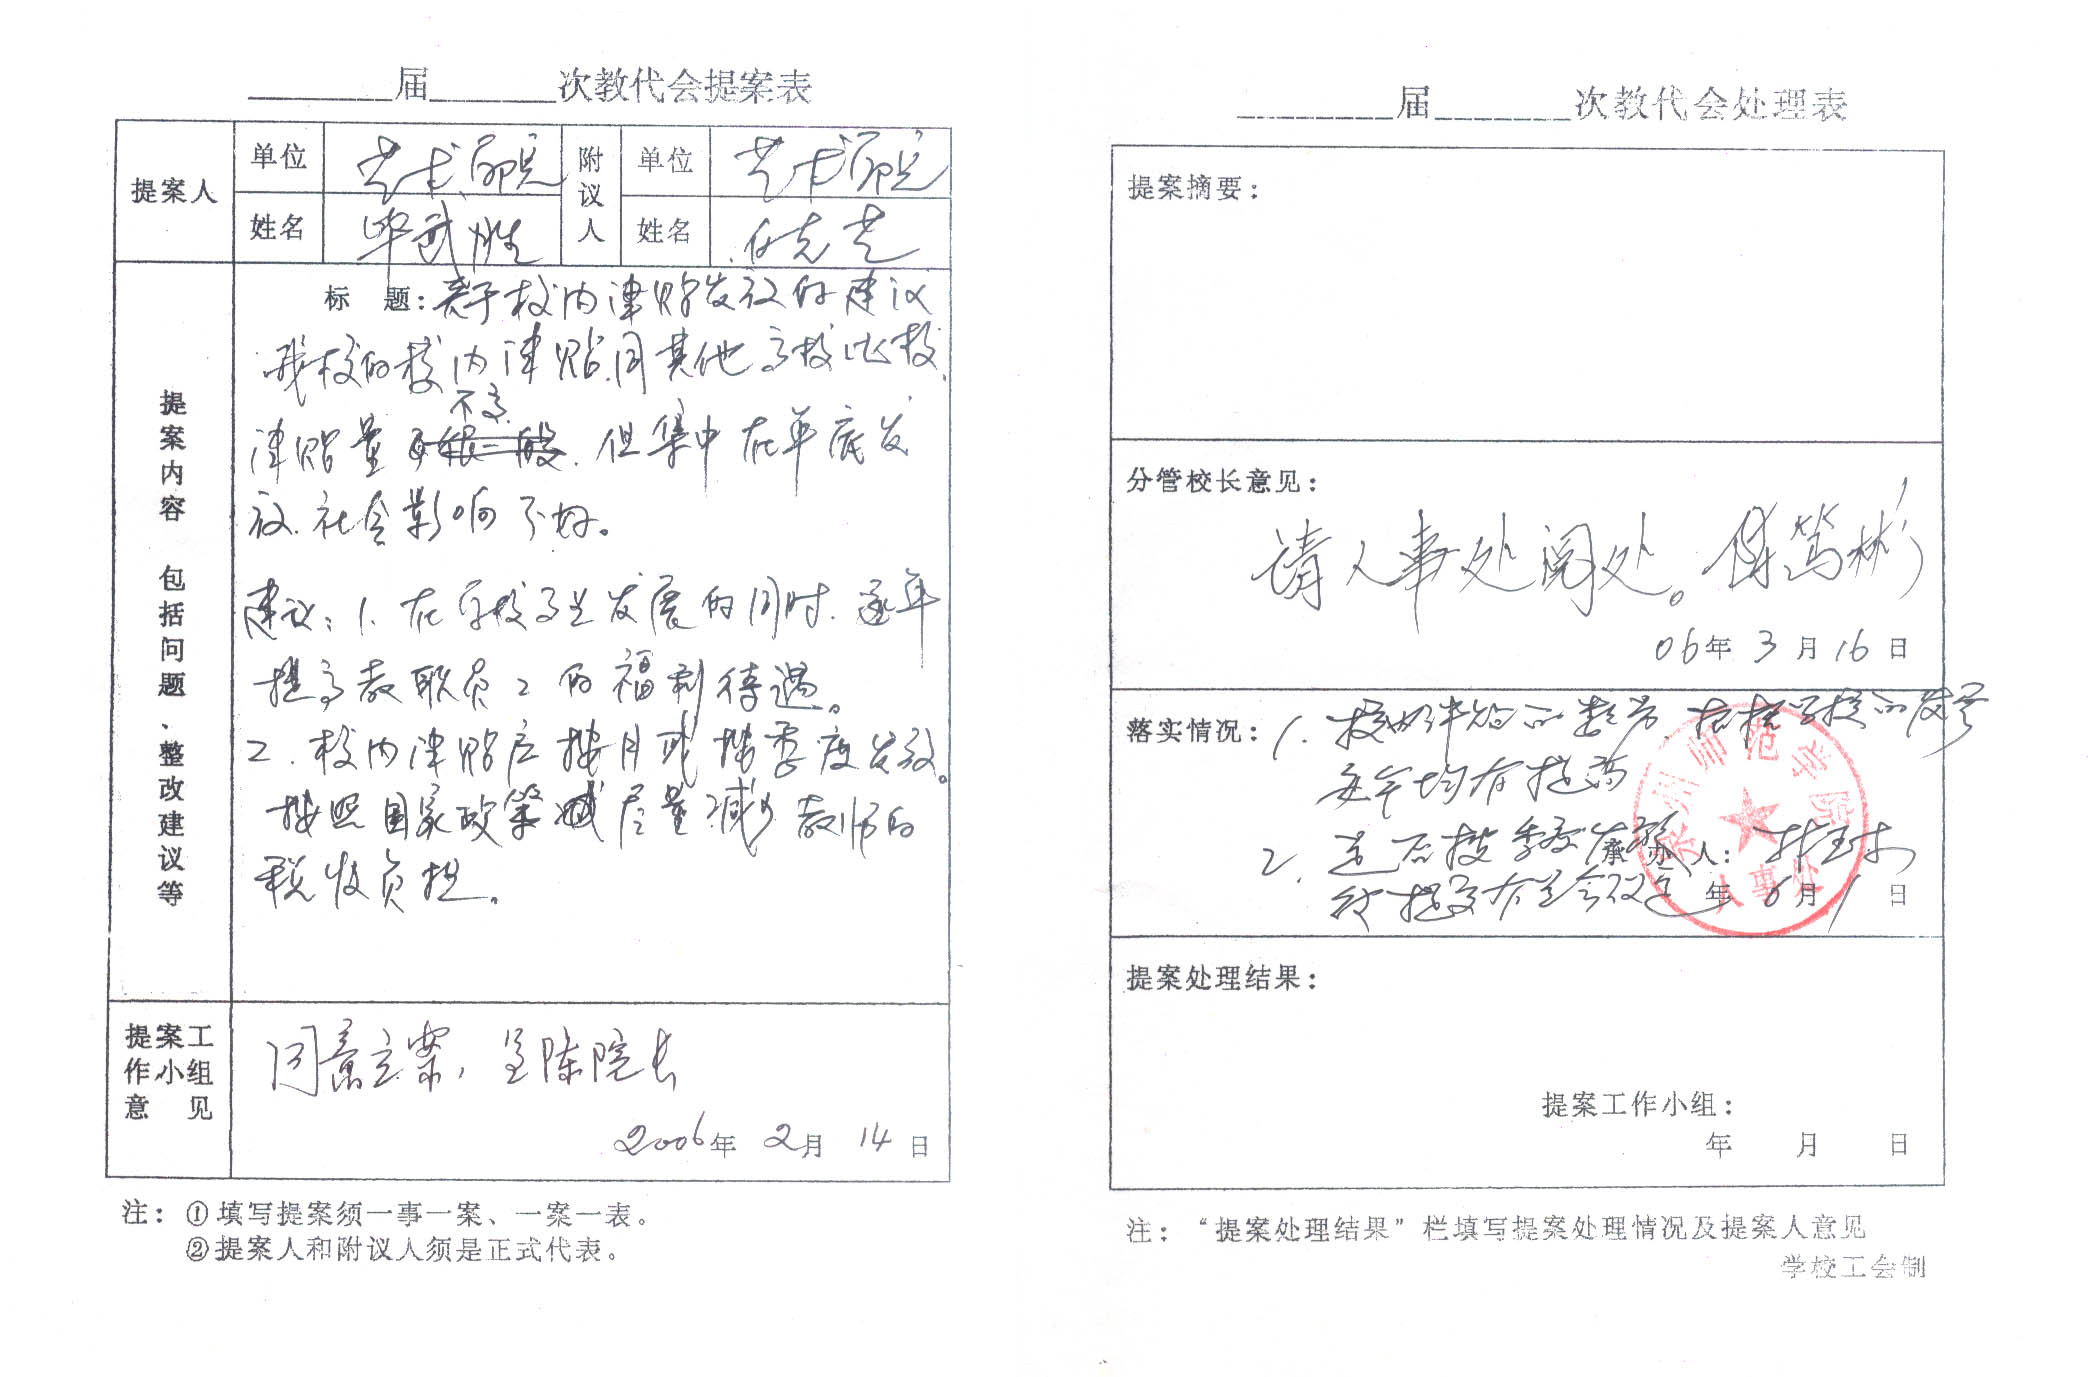 届 次教代会提案表
提案人 单位 艺术学院 附议人 单位 艺术学院
姓名 毕武胜 姓名 任克艺
提案内容 包括问题、整改建议等
标 题：关于校内津贴发放的建议
我校的校内津贴同其他高校比较，
津贴量不高，但集中在年底发
放，社会影响不好。
建议：1. 在学校事业发展的同时，逐年
提高教职员工的福利待遇。
2. 校内津贴应按月或按季度发放。
按照国家政策尽量减少教师的
税收负担。
提案工作小组意见
同意立案，呈陈院长
2006年 2月 14日
注：①填写提案须一事一案、一案一表。
②提案人和附议人须是正式代表。
届 次教代会处理表
提案摘要：
分管校长意见：
请人事处阅处。陈笃彬
06年 3月 16日
落实情况：1. 校内津贴的数字，在校学校的发展
每年均有提高
2. 是否按季度发放
待提交有关会议定
承办人：
年 6月 1日
泉州师范学院
人事处
提案处理结果：
提案工作小组：
年 月 日
注：“提案处理结果”栏填写提案处理情况及提案人意见
学校工会制